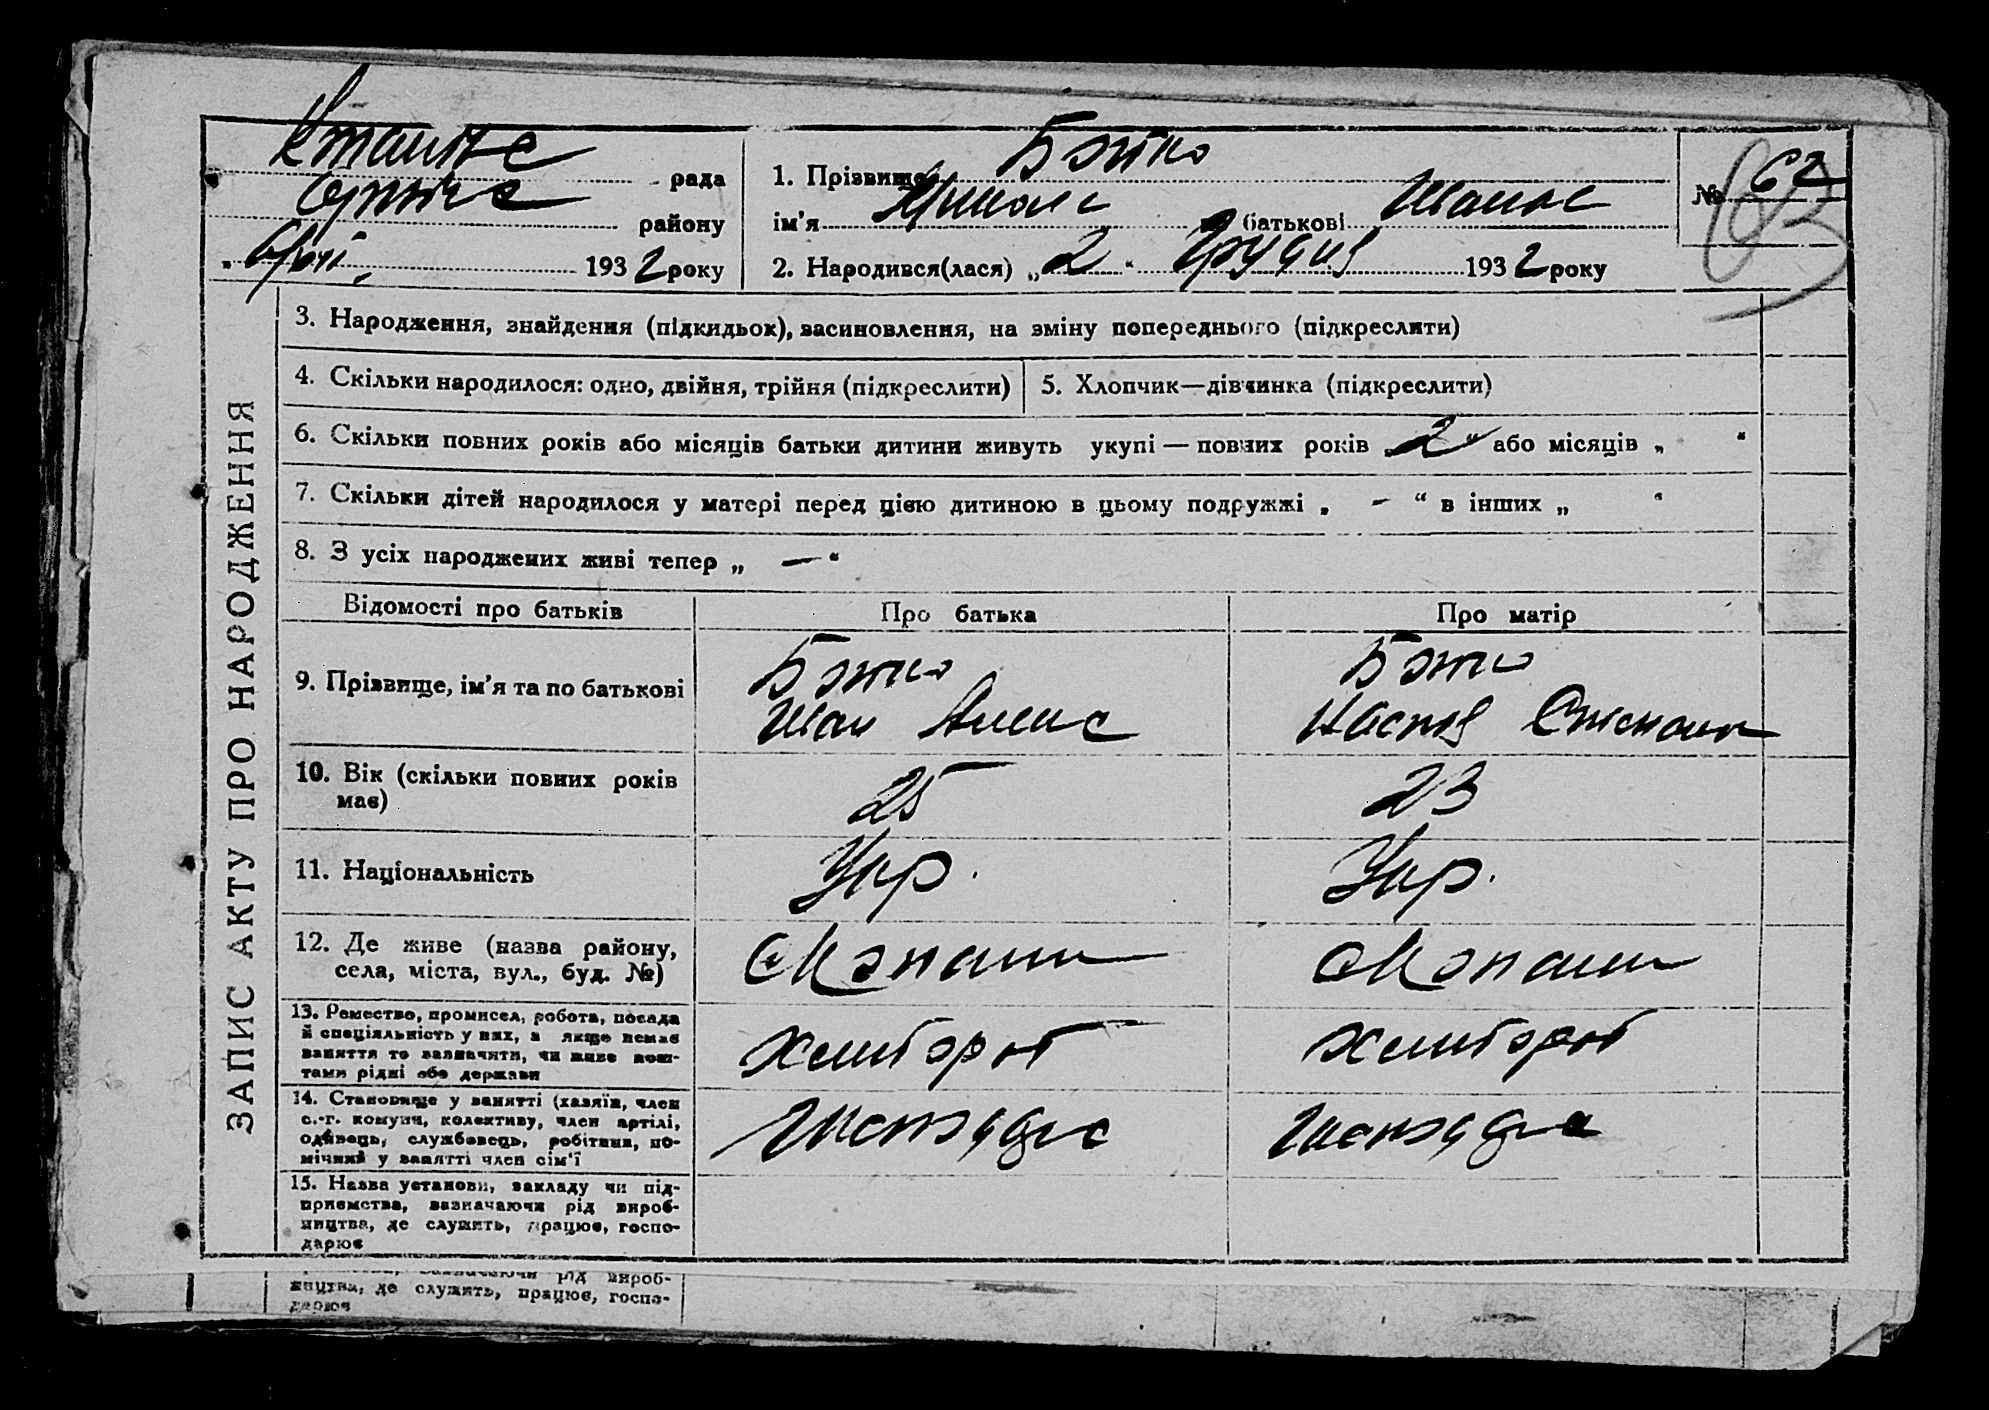 рада
1. Прізвище Бойко
№ 62
району
ім'я по батькові Іванов
193 2 року
2. Народився(лася) „ 2 “ Грудня 193 2 року
ЗАПИС АКТУ ПРО НАРОДЖЕННЯ
3. Народження, знайдення (підкидьок), засиновлення, на зміну попереднього (підкреслити)
4. Скільки народилося: одно, двійня, трійня (підкреслити)
5. Хлопчик—дівчинка (підкреслити)
6. Скільки повних років або місяців батьки дитини живуть укупі — повних років „ 2 “ або місяців „ “
7. Скільки дітей народилося у матері перед цією дитиною в цьому подружжі „ - “ в інших „ “
8. З усіх народжених живі тепер „ — “
Відомості про батьків
Про батька
Про матір
9. Прізвище, ім'я та по батькові
Бойко
Іван
Бойко
10. Вік (скільки повних років
має)
25
23
11. Національність
Укр.
Укр.
12. Де живе (назва району,
села, міста, вул., буд. №)
13. Ремество, промисел, робота, посада
й спеціяльність у них, а якщо немає
заняття то зазначити, чи живе кош-
тами рідні або держави
Хлібороб
Хлібороб
14. Становище у занятті (хазяїн, член
с.-г. комуни, колективу, член артілі,
одинець, службовець, робітник, по-
мічний у занятті член сім'ї
15. Назва установи, закладу чи під-
приємства, зазначаючи рід вироб-
ництва, де служить, працює, госпо-
дарює
рід вироб-
ництва, де служить, працює, госпо-
дарює